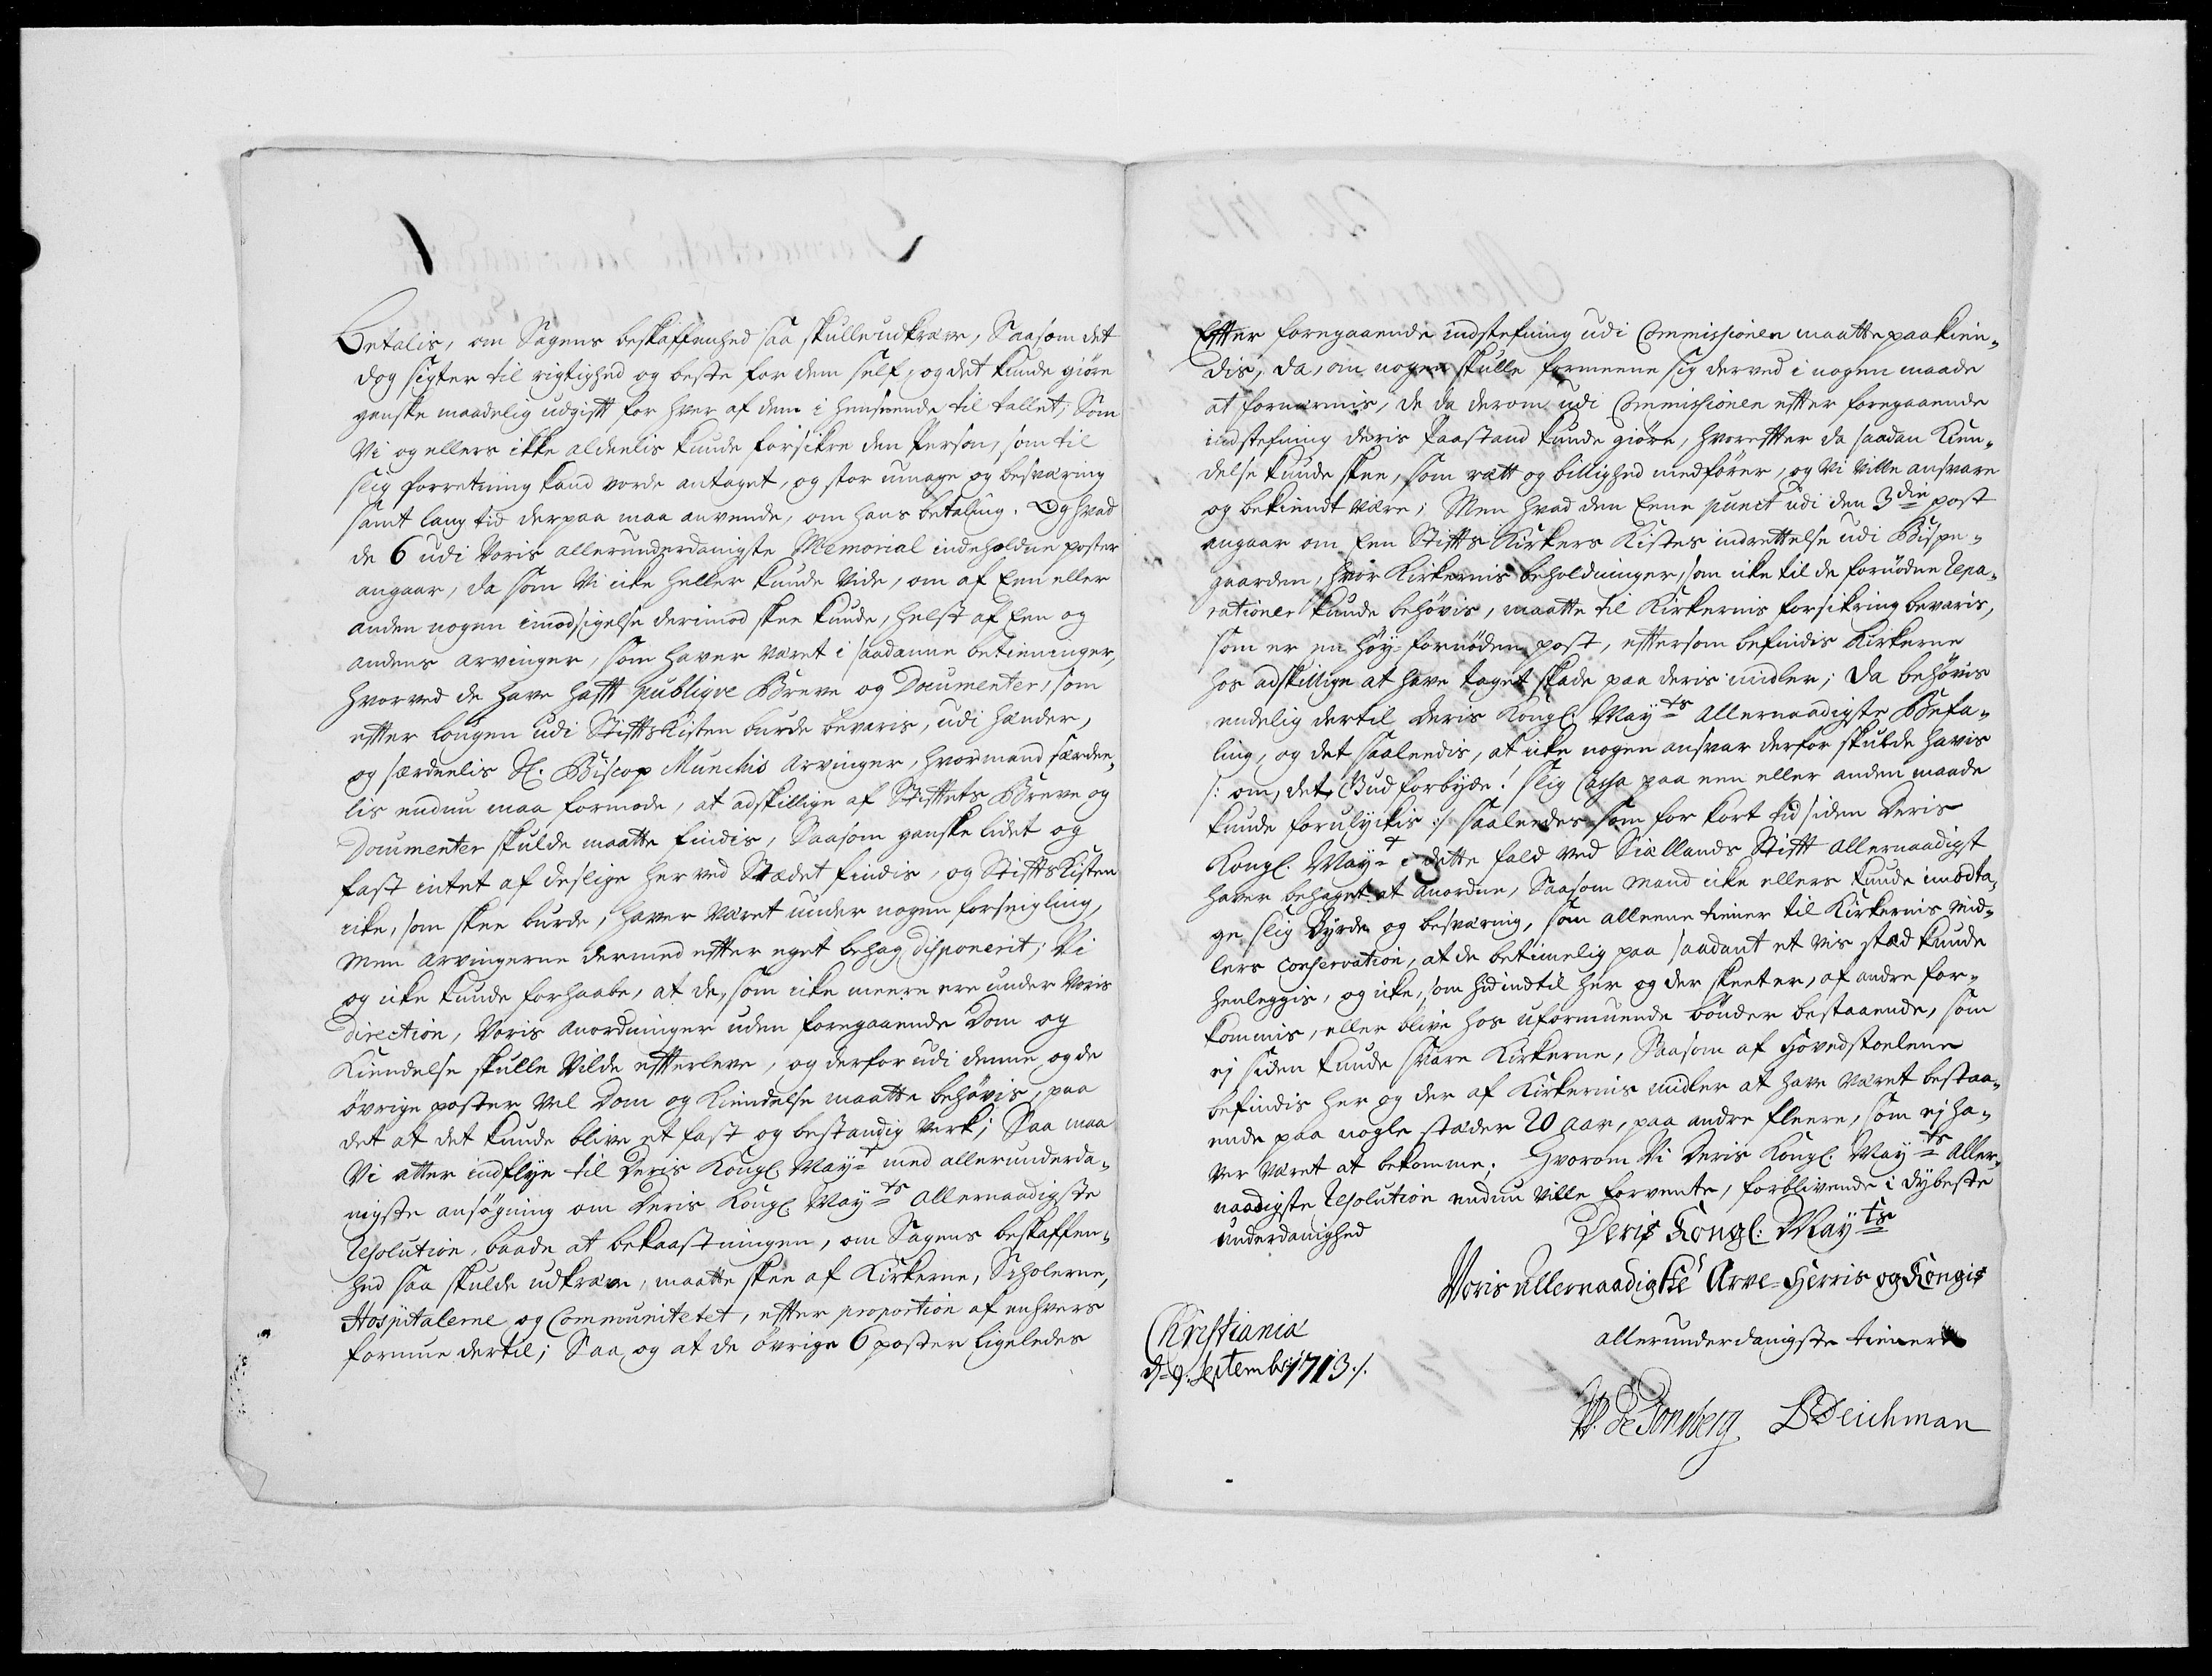 Betalis, om Sagens beskaffenhed saa skulle udkræve, Saasom det
dog sigter til rigtighed og beste for dem self, og det kunde giöre
ganske maadelig udgift for hver af dem i henseende til tallet; Som
Vi og ellers ikke aldeelis kunde forsikre den Person, som til
slig forretning kand vorde antaget, og stor umage og besværing
samt lang tid derpaa maa anvende, om hans betaling. Og hvad
de 6 udi Voris allerunderdanigste Memorial indeholdne poster
angaar, da som Vi icke heller kunde vide, om af Een eller
anden nogen imodsigelse derimod skee kunde, helst af Een og
andens arvinger, som haver været i saadanne betieninger,
hvorved de have hafft publiqve Breve og Documenter, som
effter Lougen udi StifftsKisten burde bevaris, udi hænder,
og særdeelis Sl. Biscop Munchis Arvinger, hvor mand særdee-
lis endnu maa formode, at adskillige af Stifftets Breve og
Documenter skulde maatte findis, Saasom ganske lidet og
fast intet af deslige her ved Stædet findis, og StifftsKisten
icke, som skee burde, haver været under nogen forseigling,
Men Arvingerne dermed effter eget behag disponerit; Vi
og icke kunde forhaabe, at de, som icke meere ere under Voris
Direction, Voris Anordninger uden foregaaende Dom og
Kiendelse skulle Vilde effterleve, og derfor udi denne og de
övrige poster Vel Dom og Kiendelse maatte behövis, paa
det at det kunde blive et fast og bestandig Verk; Saa maa
Vi atter indflye til Deris Kongl. May:t med allerunderda-
nigste ansögning om Deris Kongl. May:ts Allernaadigste
Resolution, baade at bekaastningen, om Sagens beskaffen-
hed saa skulde udkræve, maatte skee af Kirkerne, Scholerne,
Hospitalerne og Communitetet, effter proportion af enhvers
formue dertil; Saa og at de övrige 6 poster ligeledes
Effter foregaaende indstefning udi Commissionen maatte paakien-
dis, da, om nogen skulle formeene sig derved i nogen maade
at fornærmis, de da derom udi Commissionen effter foregaaende
indstefning deris paastand kunde giöre, hvoreffter da saadan Kien-
delse kunde skee, som rætt og billighed medförer, og Vi ville ansvare
og bekiendt være; Men hvad den Eene punct udi den 3die post
angaar om Een Stiffts Kirkers Kistes indrettelse udi Bispe-
gaarden, hvor Kirkernis beholdninger, som icke til de fornödne Repa-
rationer kunde behövis, maatte til Kirkernis forsikring bevaris,
som er en höy-fornöden post, efftersom befindis Kirkerne
hos adskillige at have taget skade paa deris midler; Da behövis
endelig dertil Deris Kongl. May:ts Allernaadigste Befa-
ling, og det saaleedis, at icke nogen ansvar derfor skulde havis
/: om, det Gud forbyde! slig Cassa paa een eller anden maade
kunde forulyckis :/ saaleedes som for kort tid siden Deris
Kongl. May:t i dette fald ved Siællands Stifft allernaadigst
haver behaget at anordne, Saasom mand icke ellers kunde imodta-
ge slig Byrde og besværing, som alleene tiener til Kirkernis mid-
lers Conservation, at de betimelig paa saadant et vis stæd kunde
henleggis, og icke, som hidindtil her og der skeet er, af andre for-
kommis, eller blive hos uformuende bönder bestaaende, som
ej siden kunde svare Kirkerne, Saasom af Hovedstoelene
befindis her og der af Kirkernis midler at have været bestaa-
ende paa nogle stæder 20 Aar, paa andre fleere, som ej ha-
ver været at bekomme. Hvorom Vi Deris Kongl. May:ts Aller-
naadigste Resolution endnu ville forvente, forblivende i dybeste
underdanighed
Deris Kongl: May:ts
Voris allernaadigste Arve-Herris og Kongis
allerunderdanigste tienere
Christiania
d. 9. Septembr: 1713./.
W. de Tonsberg BDeichman